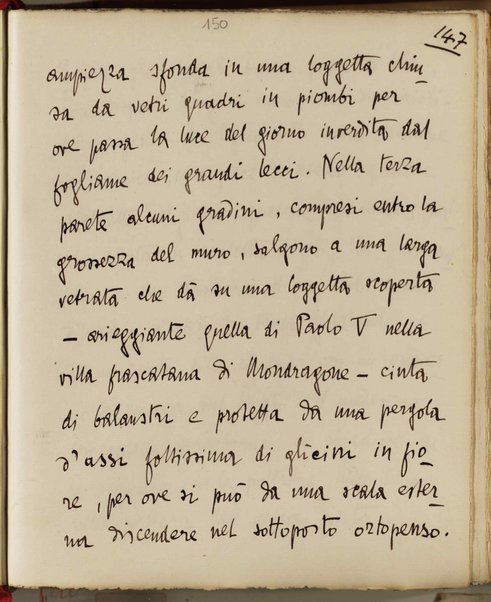 150
147
ampiezza sfonda in una loggetta chiu-
sa da vetri quadri in piombi per
ove passa la luce del giorno inverdita dal
fogliame dei grandi lecci. Nella terza
parete alcuni gradini, compresi entro la
grossezza del muro, salgono a una larga
vetrata che dà su una loggetta scoperta
– arieggiante quella di Paolo V nella
villa frascatana di Mondragone – cinta
di balaustri e protetta da una pergola
d'assi foltissima di glicini in fio-
re, per ove si può da una scala ester-
na discendere nel sottoposto ortopenso.